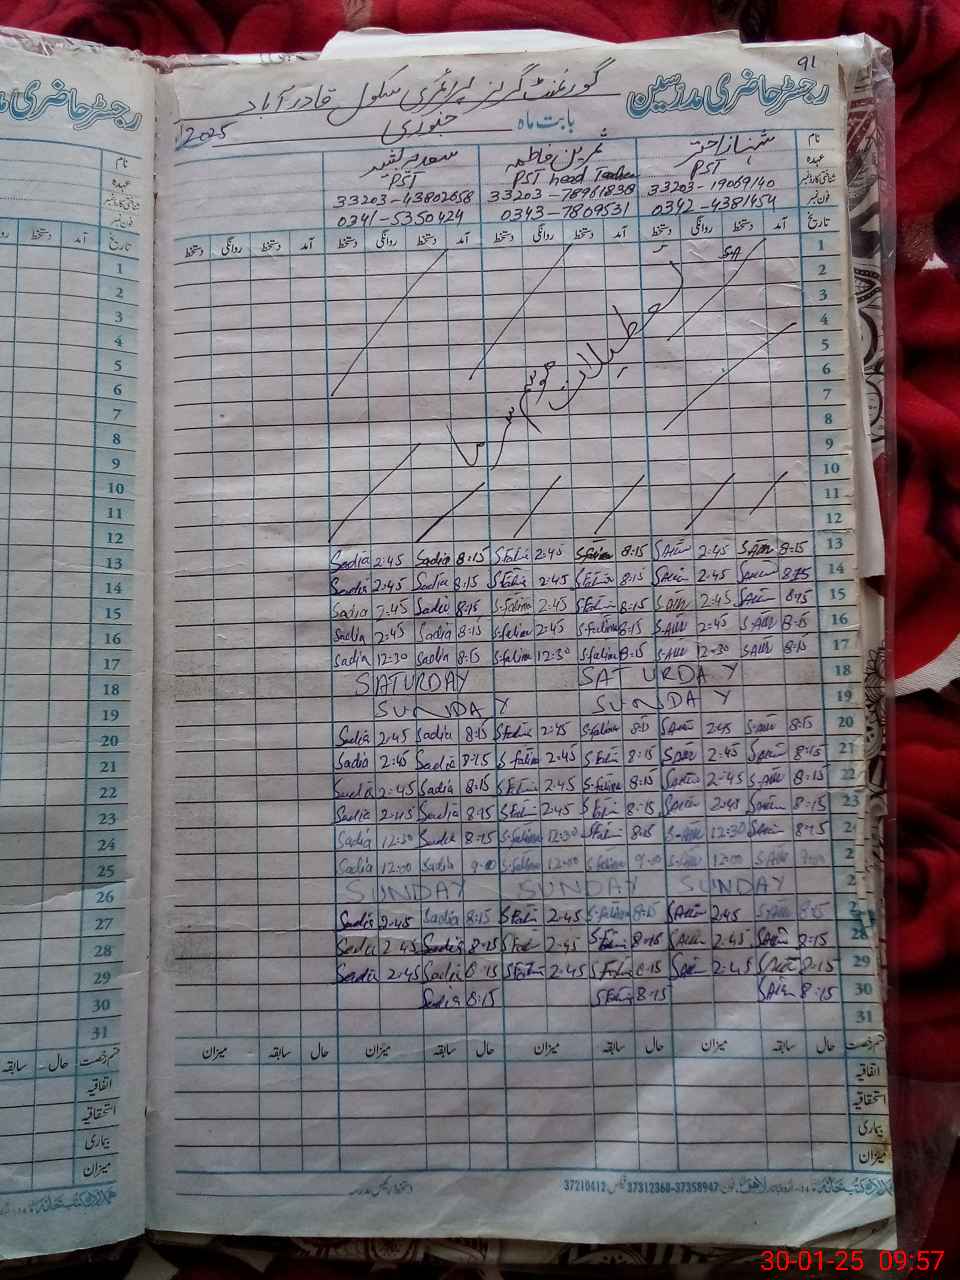 91
رجسٹر حاضری مدرسین گورنمنٹ گرلز پرائمری سکول قادر آباد
بابت ماہ جنوری 2025
نام شہناز اختر ثمرین فاطمہ سعدیہ
عہدہ PST PST head Teacher PST
شناختی کارڈ نمبر 33203-19069140 33203-78961838 33203-43802658
فون نمبر 0342-4381454 0343-7809531 0341-5350424
تاریخ آمد دستخط روانگی دستخط آمد دستخط روانگی دستخط آمد دستخط روانگی دستخط آمد دستخط روانگی دستخط
1 S.A
2
3
4
5
6
7
8
9
10
11
12
تعطیلات موسم سرما
Sadia 2:45 Sadia 8:15 S.Fatima 2:45 S.Fatima 8:15 2:45 8:15 13
Sadia 2:45 Sadia 8:15 S.Fatima 2:45 S.Fatima 8:15 2:45 8:15 14
Sadia 2:45 Sadia 8:15 S.Fatima 2:45 S.Fatima 8:15 2:45 8:15 15
Sadia 2:45 Sadia 8:15 S.Fatima 2:45 S.Fatima 8:15 2:45 8:15 16
Sadia 12:30 Sadia 8:15 S.Fatima 12:30 S.Fatima 8:15 12:30 8:15 17
SATURDAY SATURDAY 18
SUNDAY SUNDAY 19
Sadia 2:45 Sadia 8:15 S.Fatima 2:45 S.Fatima 8:15 2:45 8:15 20
Sadia 2:45 Sadia 8:15 S.Fatima 2:45 S.Fatima 8:15 2:45 8:15 21
Sadia 2:45 Sadia 8:15 S.Fatima 2:45 S.Fatima 8:15 2:45 8:15 22
Sadia 2:45 Sadia 8:15 S.Fatima 2:45 S.Fatima 8:15 2:45 8:15 23
Sadia 12:30 Sadia 8:15 S.Fatima 12:30 S.Fatima 8:15 12:30 8:15 2
Sadia 12:00 Sadia 9:00 S.Fatima 12:00 S.Fatima 9:00 12:00 2
SUNDAY SUNDAY SUNDAY 2
Sadia 2:45 Sadia 8:15 S.Fatima 2:45 S.Fatima 8:15 2:45 8:15 2
Sadia 2:45 Sadia 8:15 S.Fatima 2:45 S.Fatima 8:15 2:45 8:15 28
Sadia 2:45 Sadia 8:15 S.Fatima 2:45 S.Fatima 8:15 2:45 8:15 29
Sadia 8:15 S.Fatima 8:15 8:15 30
31
قسم رخصت حال سابقہ میزان حال سابقہ میزان حال سابقہ میزان حال سابقہ میزان
اتفاقیہ
استحقاقیہ
بیماری
میزان
ہمدرد کتب خانہ لاہور فون 37312360-37358947 فیکس 37210412
رجسٹر حاضری
نام
عہدہ
شناختی کارڈ نمبر
فون نمبر
تاریخ آمد دستخط
1
2
3
4
5
6
7
8
9
10
11
12
13
14
15
16
17
18
19
20
21
22
23
24
25
26
27
28
29
30
31
قسم رخصت حال سابقہ
اتفاقیہ
استحقاقیہ
بیماری
میزان
30-01-25 09:57